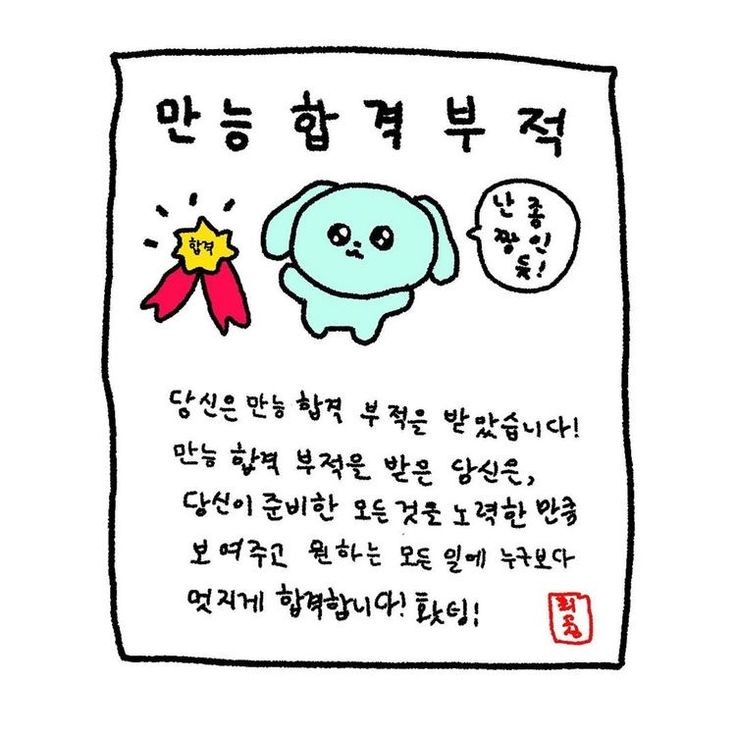 만능 합격 부적
합격
난 좀
짱인
듯!
당신은 만능 합격 부적을 받았습니다!
만능 합격 부적을 받은 당신은,
당신이 준비한 모든 것을 노력한 만큼
보여주고 원하는 모든 일에 누구보다
멋지게 합격합니다! 홧팅!